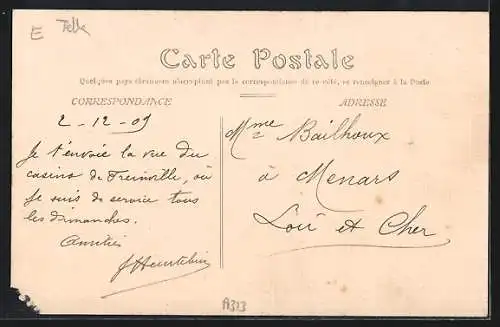 E
Carte Postale
Quelques pays étrangers n'acceptant pas la correspondance de ce côté, se renseigner à la Poste
CORRESPONDANCE
ADRESSE
2-12-09
Je t'envoie la vue du
casino de Freinville, où
je suis de service tous
les dimanches.
Amitiés
Mme Bailhoux
à Menars
Loir et Cher
A313